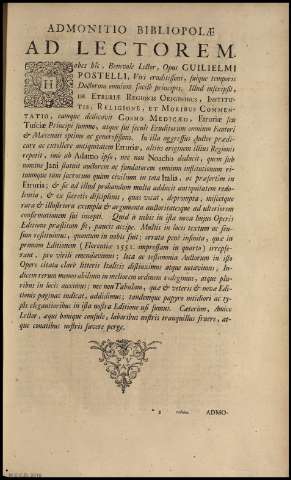 ADMONITIO BIBLIOPOLÆ
AD LECTOREM.
Habes hîc, Benevole Lector, Opus GUILIELMI
POSTELLI, Viri eruditissimi, suique temporis
Doctorum omnium facilè principis, Illud inscripsit,
DE ETRURIÆ REGIONIS ORIGINIBUS, INSTITU-
TIS, RELIGIONE, ET MORIBUS COMMEN-
TATIO, eamque dedicavit COSMO MEDICÆO, Etruriæ seu
Tusciæ Principi summo, atque sui seculi Eruditorum omnium Fautori
& Mecœnati optimo ac generosissimo. In illa aggressus Author prædi-
care ac extollere antiquitatem Etruriæ, altius originem illius Regionis
repetit, imò ab Adamo ipso, nec non Noacho deducit, quem sub
nomine Jani statuit authorem ac fundatorem omnium institutionum ri-
tuumque tam sacrorum quàm civilium in tota Italia, ac præsertim in
Etruria; & sic ad illud probandum multa adducit antiquitatem redo-
lentia, & ex secretis disciplinis, quas vocat, deprompta, mixtaque
rara & illustriora exempla & argumenta authoritatesque ad ulteriorem
confirmationem sui incepti. Quid à nobis in ista nova hujus Operis
Editione præstitum sit, paucis accipe. Multis in locis textum ac sen-
sum restituimus, quantum in nobis fuit; errata penè infinita, quæ in
primam Editionem (Florentiæ 1551. impressam in quarto) irrepse-
rant, pro virili emendavimus; loca ac testimonia Authorum in isto
Opere citata claré litteris Italicis distinximus atque notavimus; In-
dicem rerum memorabilium in meliorem ordinem redegimus, atque plu-
ribus in locis auximus; nec non Tabulam, quæ & veteris & novæ Edi-
tionis paginas indicat, addidimus; tandemque papyro nitidiori ac ty-
pis elegantioribus in ista nostra Editione usi sumus. Cæterùm, Amice
Lector, æqui bonique consule, laboribus nostris tranquillus fruere, at-
que conatibus nostris favere perge.
ADMO-